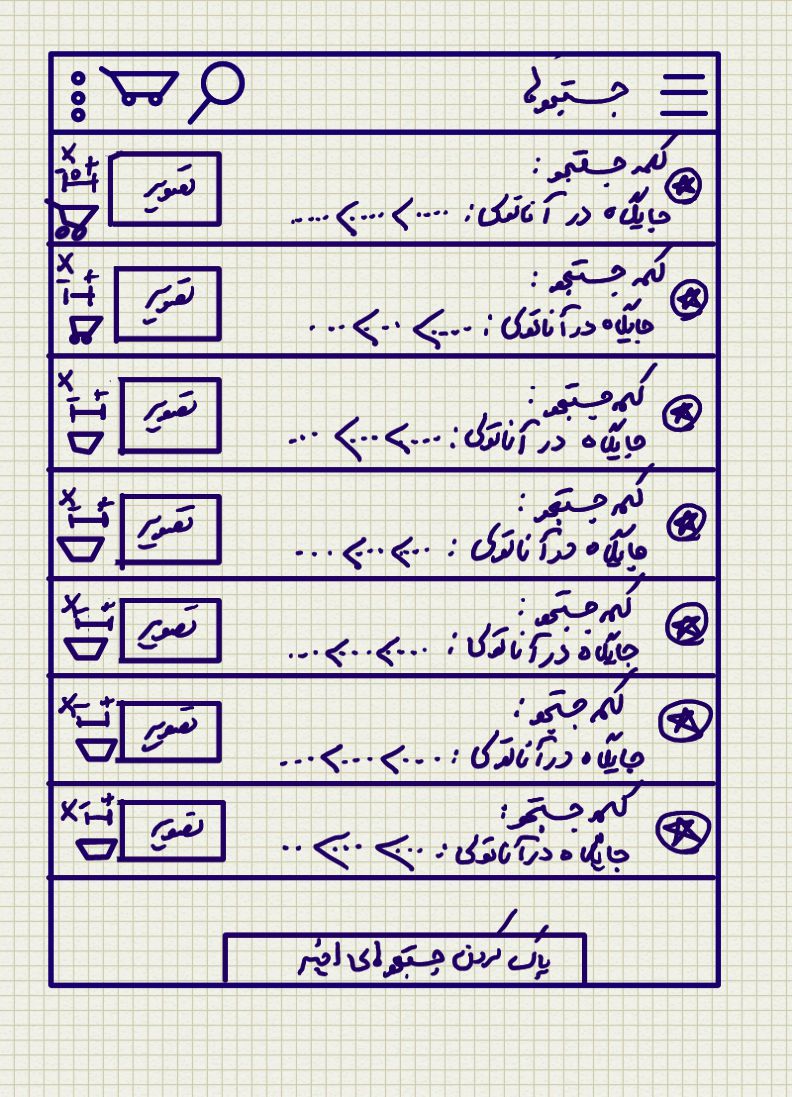 جستجوها
کلمه جستجو :
جایگاه در آناتومی : ....> ....> ....
تصویر
کلمه جستجو :
جایگاه در آناتومی : ....> ....> ....
تصویر
کلمه جستجو :
جایگاه در آناتومی : ....> ....> ....
تصویر
کلمه جستجو :
جایگاه در آناتومی : ....> ....> ....
تصویر
کلمه جستجو :
جایگاه در آناتومی : ....> ....> ....
تصویر
کلمه جستجو :
جایگاه در آناتومی : ....> ....> ....
تصویر
کلمه جستجو :
جایگاه در آناتومی : ....> ....> ....
تصویر
پاک کردن جستجوهای اخیر